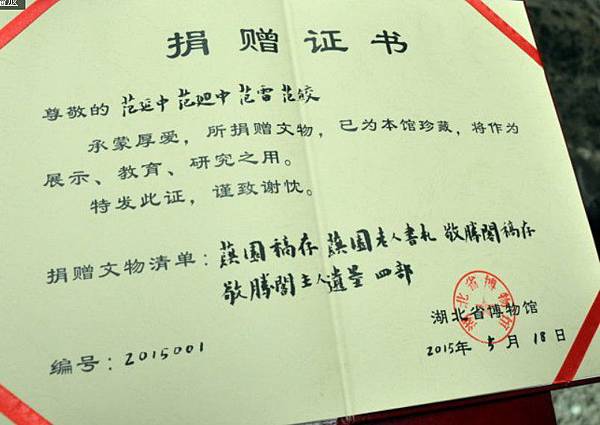 捐赠证书
尊敬的 范延中 范迎中 范雷 范皎
承蒙厚爱，所捐赠文物，已为本馆珍藏，将作为
展示、教育、研究之用。
特发此证，谨致谢忱。
捐赠文物清单：蕻園稿存 蕻園老人書札 敬勝閣稿存
敬勝閣主人遺墨 四部
湖北省博物馆
湖北省博物馆
编号：2015001
2015年 5 月 18 日